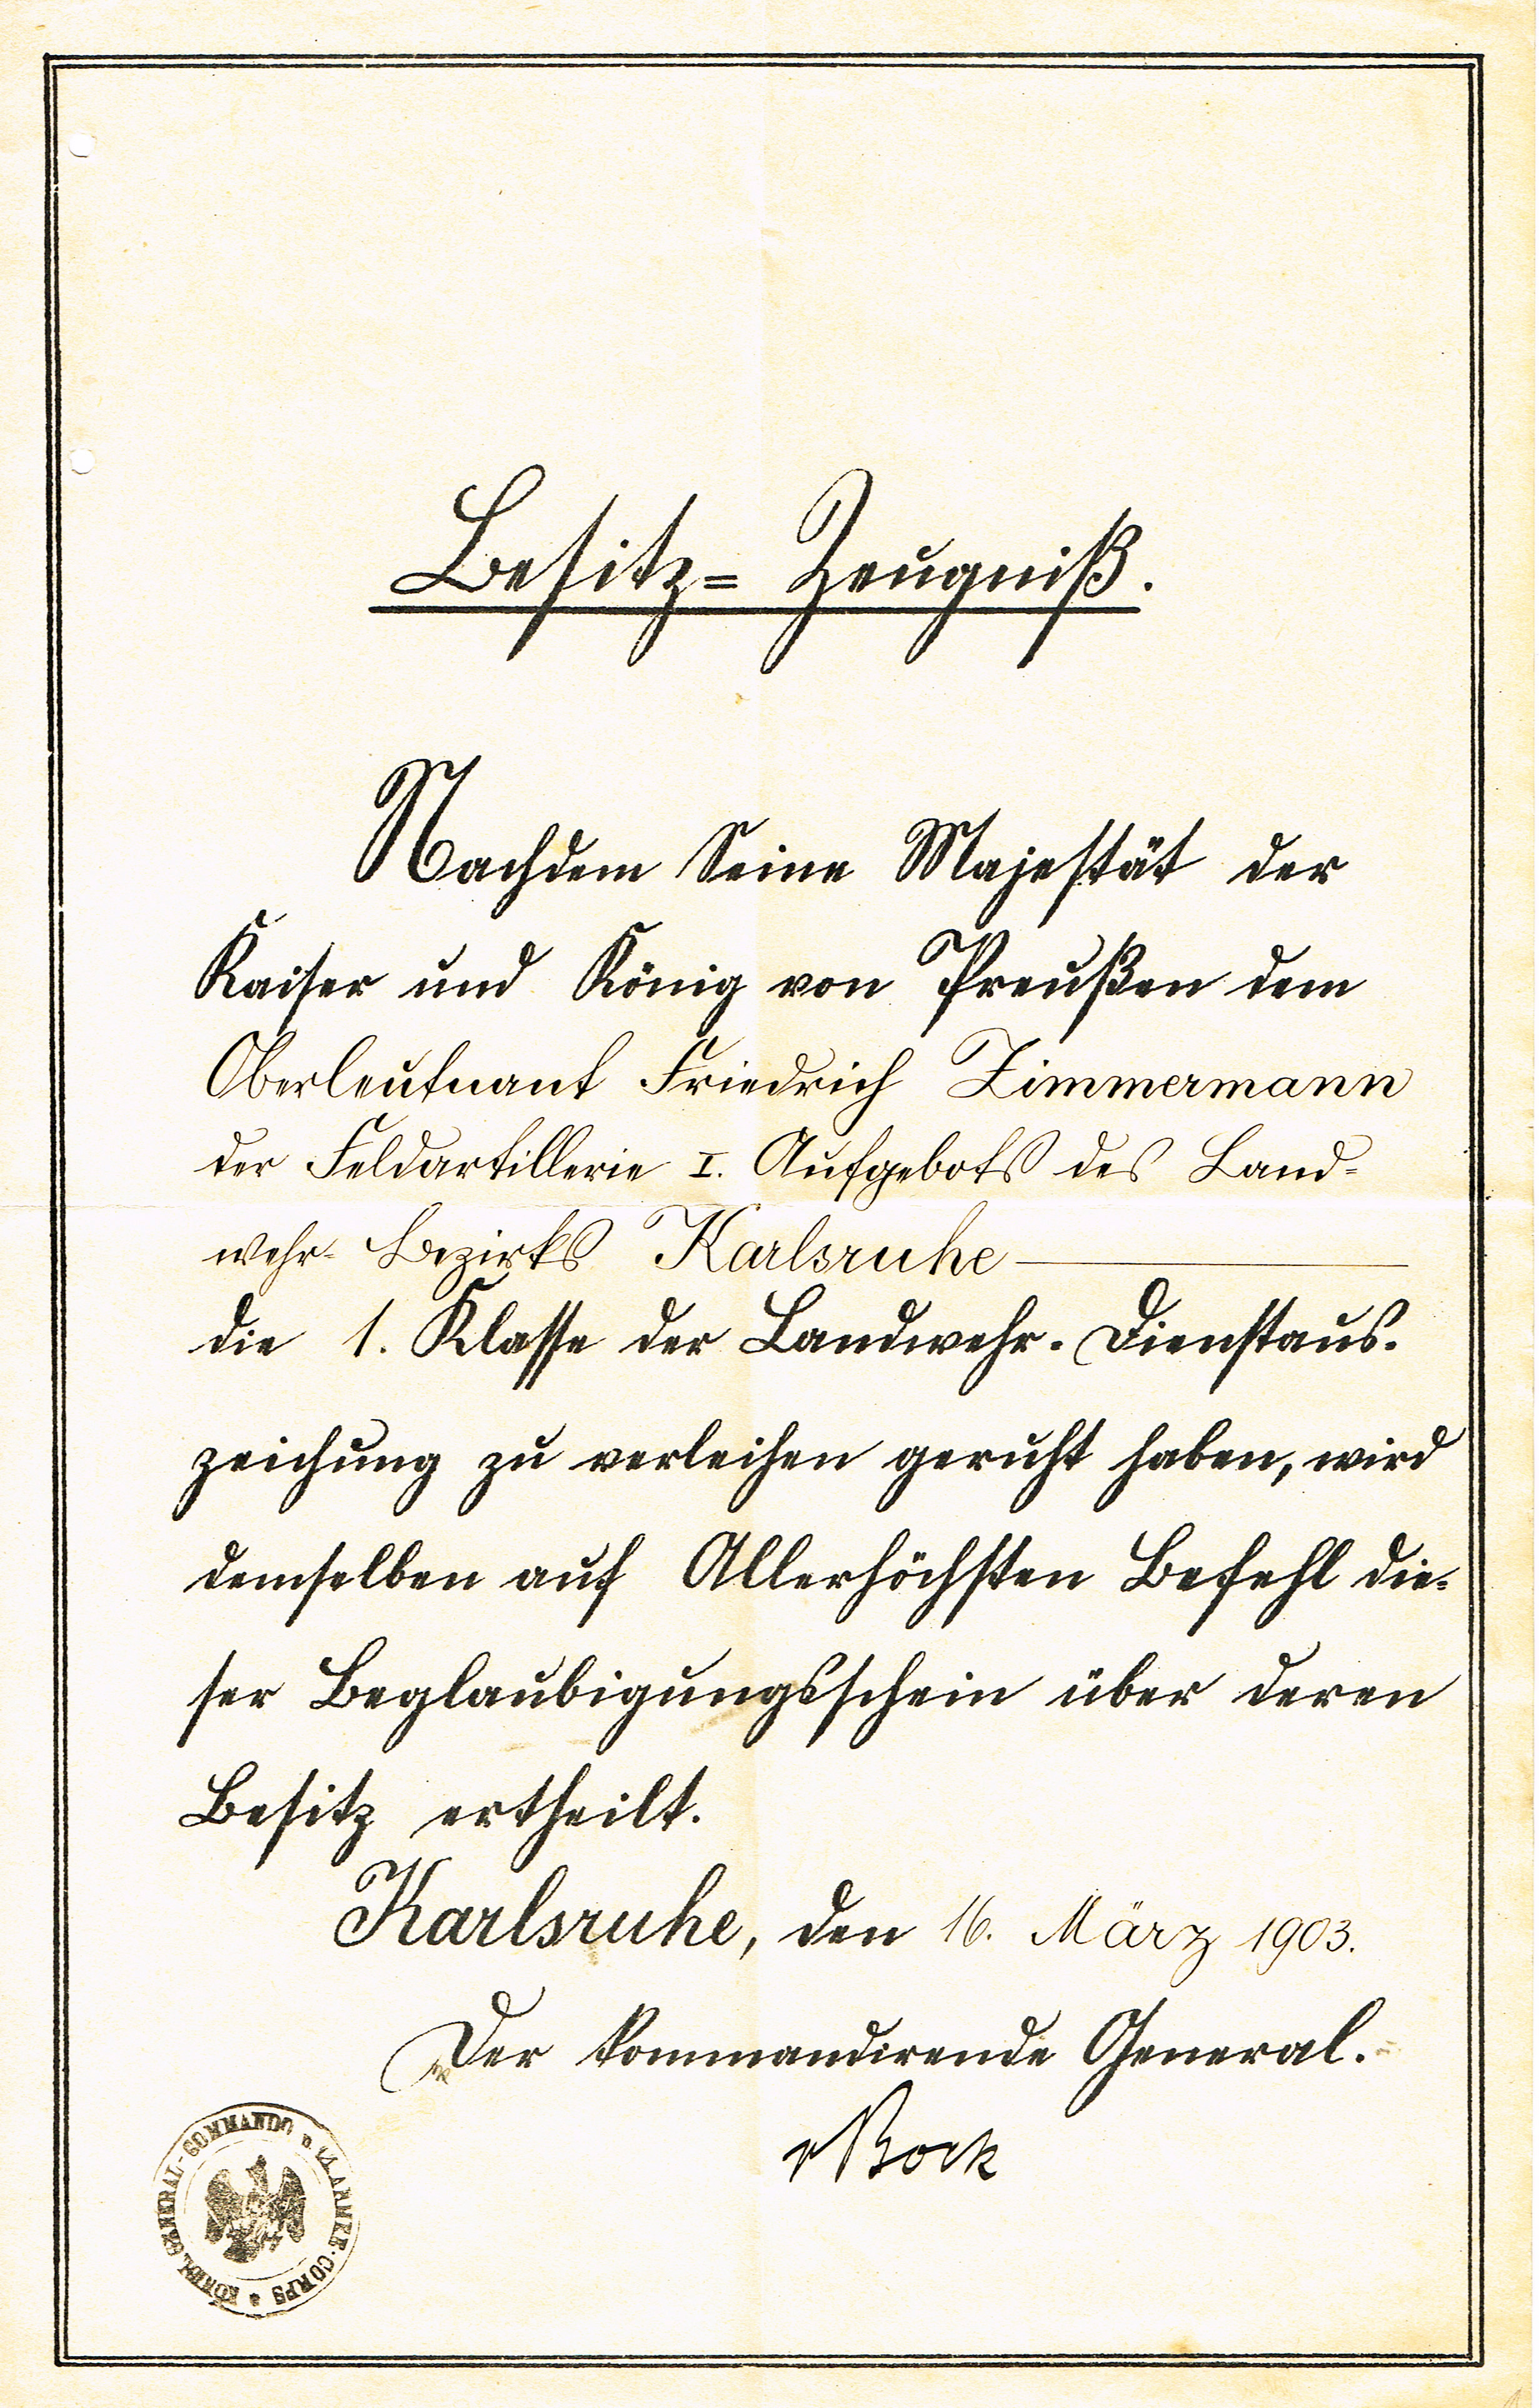 Besitz= Zeugniß.
Nachdem Seine Majestät der
Kaiser und König von Preußen dem
Oberleutnant Friedrich Zimmermann
der Feldartillerie I. Aufgebots des Land-
wehr- Bezirks Karlsruhe
die 1. Klasse der Landwehr-Dienstaus-
zeichung zu verleihen geruht haben, wird
demselben auf Allerhöchsten Befehl die-
ser Beglaubigungsschein über deren
Besitz ertheilt.
Karlsruhe, den 16. März 1903.
Der kommandirende General.
vBock
KÖNIGL. GENERAL-COMMANDO D. 14. ARMEE-CORPS